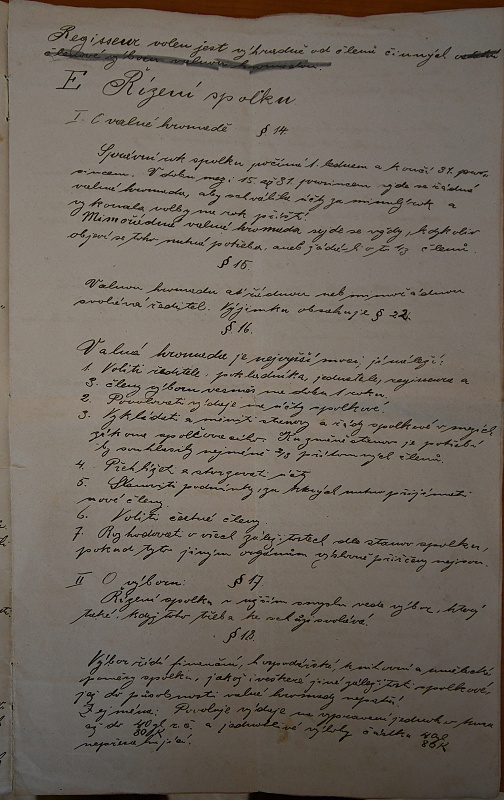 Regisseur volen jest výhradně od členů činných
E Řízení spolku
I. O valné hromadě § 14.
Správní rok spolku počíná 1. lednem a končí 31. pro-
sincem. V době mezi 15. až 31. prosincem sejde se řádná
valná hromada, aby schválila účty za minulý rok a
vykonala volby na rok příští.
Mimořádná valná hromada sejde se vždy, kdykoliv
objeví se toho nutná potřeba, aneb žádá-li o to členů
§ 15.
Valnou hromadu ať řádnou neb mimořádnou
svolává ředitel. Výjimka obsahuje § 22.
§ 16.
Valná hromada je nejvyšší moc; jí náleží:
1. Voliti ředitele, pokladníka, jednatele, regisseura a
3. členy výboru vesměs na dobu 1 roku.
2. Povolovati výdaje na účty spolkové.
3. Vykládati a měniti stanovy a řády spolkové v mezích
zákona spolčovacího. Ku změně stanov je potřebí
by souhlasily nejméně 2/3 přítomných členů.
4. Přehlížet a stvrzovati účty
5. Stanoviti podmínky, za kterých nutno přijímati
nové členy
6. Voliti čestné členy
7. Rozhodovat o všech záležitostech dle stanov spolku,
pokud tyto jiným orgánům výslovně přiřčeny nejsou.
II O výboru: § 17.
Řízení spolku v užším smyslu vede výbor, který
také, kdyj toho třeba ke schůzi svolává.
§ 18.
Výbor řídí finanční, hospodářské, knihovní a umělecké
poměry spolku, jakož i veškeré jiné záležitosti spolkové,
jež do působnosti valné hromady nepatří.
Zejména: Povoluje výdaje na vypravení jednoh. v kusu
až do 40 zl r. č. a jednotlivé výlohy částku 40 zl
80 K 80 K